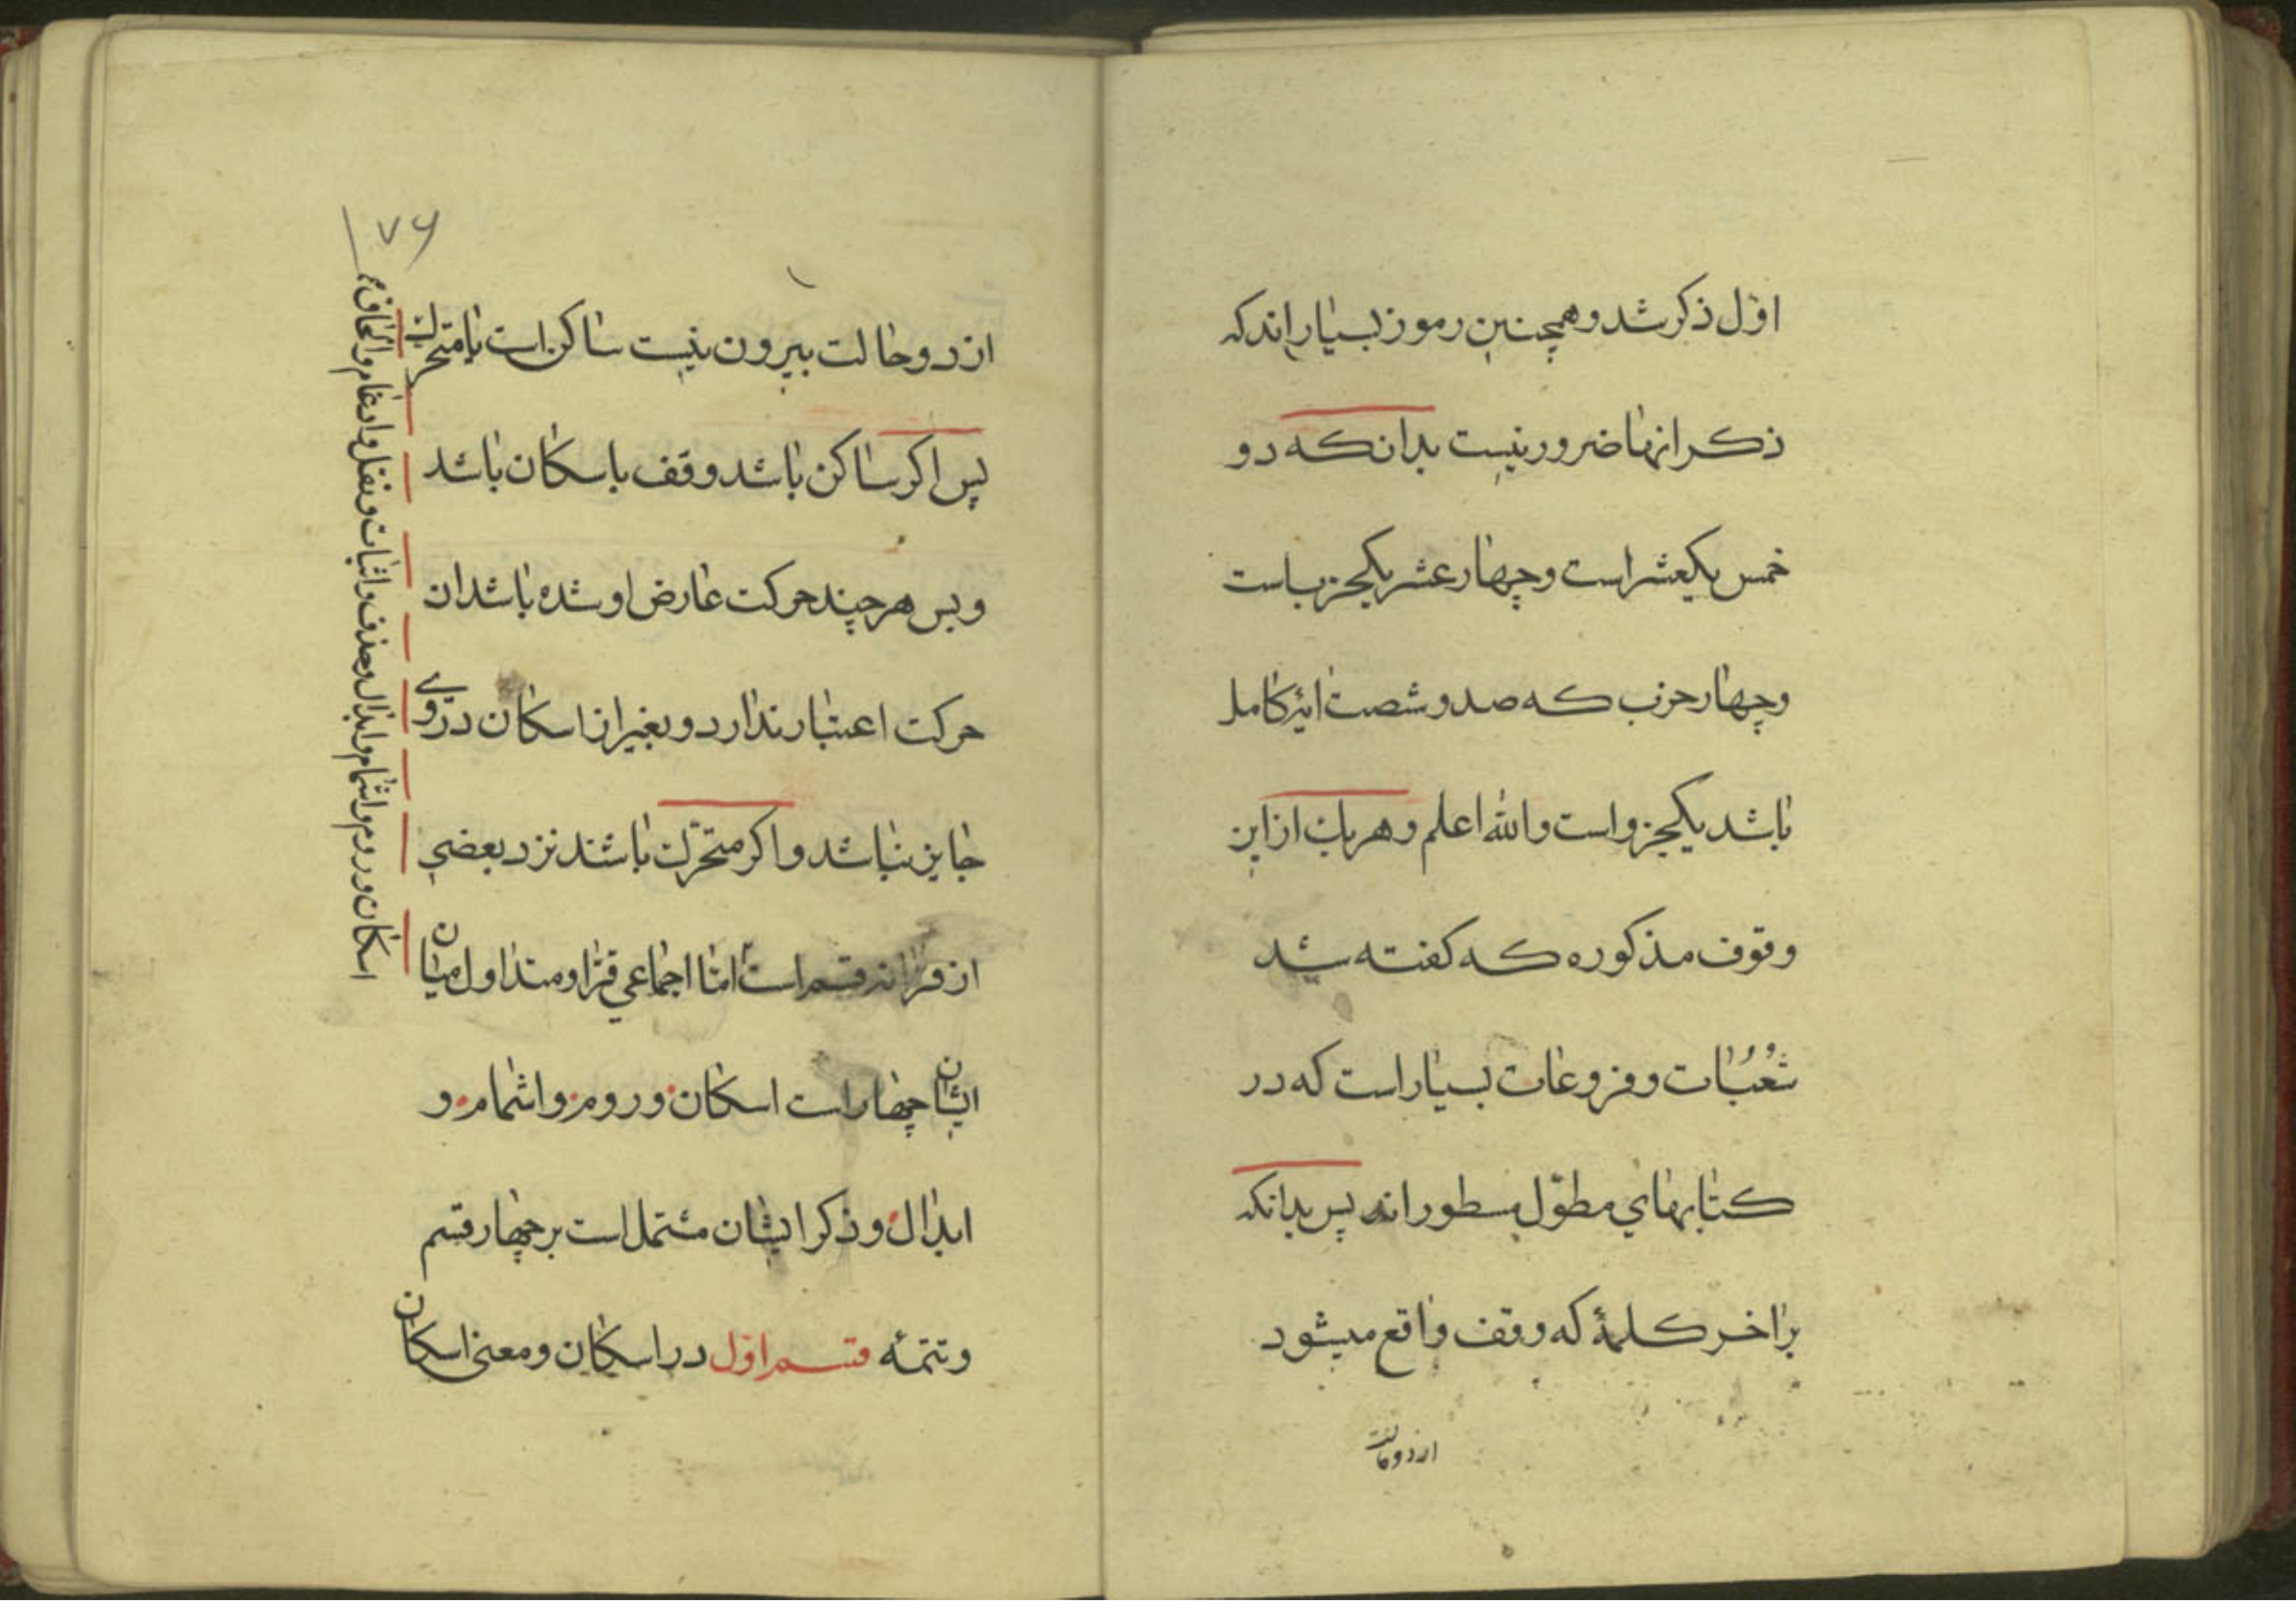 اوّل ذکر شد و همچنین رموز بسیار اند که
ذکر انها ضرور نیست بدانکه دو
خمس یکعشر است و چهار عشر یکحزب است
و چهار حزب که صد و شصت ایۀ کامل
باشد یکجزو است و الله اعلم و هریک از این
وقوف مذکوره که کفته شد
شُعُبات و فروعات بسیار است که در
کتابهاي مطوّل مسطور اند پس بدانکه
بر اخر کلمۀ که وقف واقع میشود
از دو حالت
۱۷۶
از دو حالت بیرون نیست ساکن است یا متحرک
پس اکر ساکن باشد وقف باسکان باشد
و بس هر چند حرکت عارض او شده باشد ان
حرکت اعتبار ندارد و بغیر از اسکان در وی
جایز نباشد و اکر متحرّک باشند نزد بعضي
از قرّا نه قسم است امّا اجماعي قرّا و متداول میان
ایشان چهار است اسکان و روم و اشمام و
ابدال و ذکر ایشان مشتمل است بر چهار قسم
و تتمّه قسم اوّل در اسکان و معني اسکان
اسکان و روم و اشمام و ابدال و حذف و اثبات و نقل و ادغام و الحاق